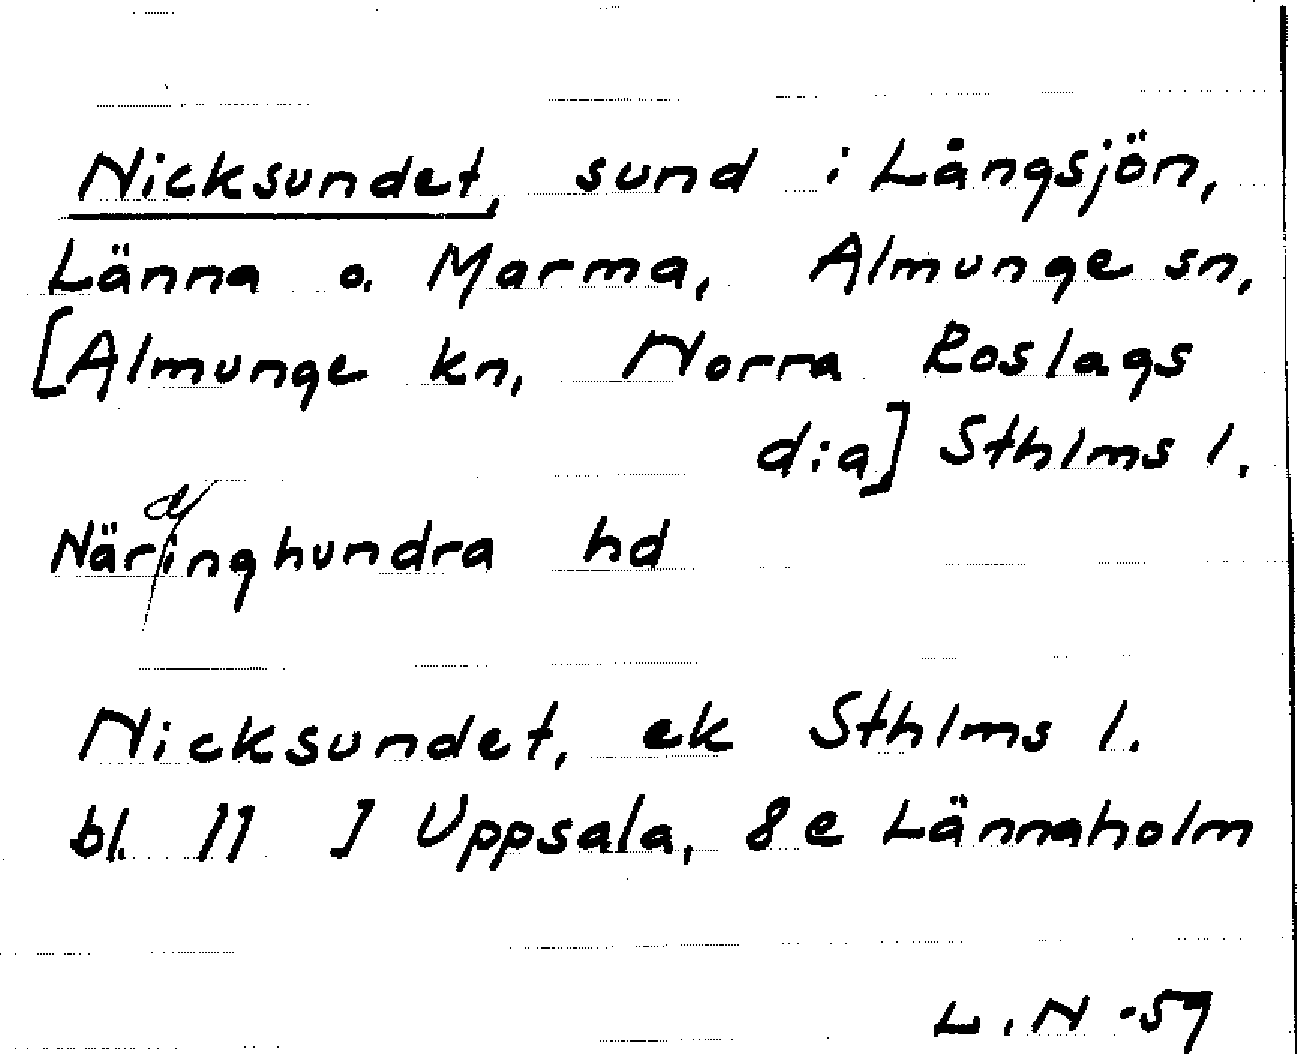 Nicksundet, sund i Långsjön,
Länna o. Marma, Almunge sn,
[Almunge kn, Norra Roslags
d:a] Sthlms l.
Närdinghundra hd
Nicksundet, ek Sthlms l.
bl. 11 J Uppsala, 8e Lännaholm
L.N -59